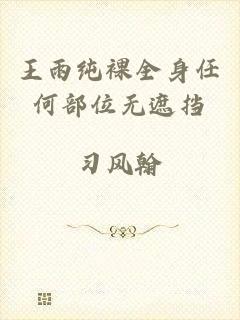 王雨纯裸全身任
何部位无遮挡
习风翰